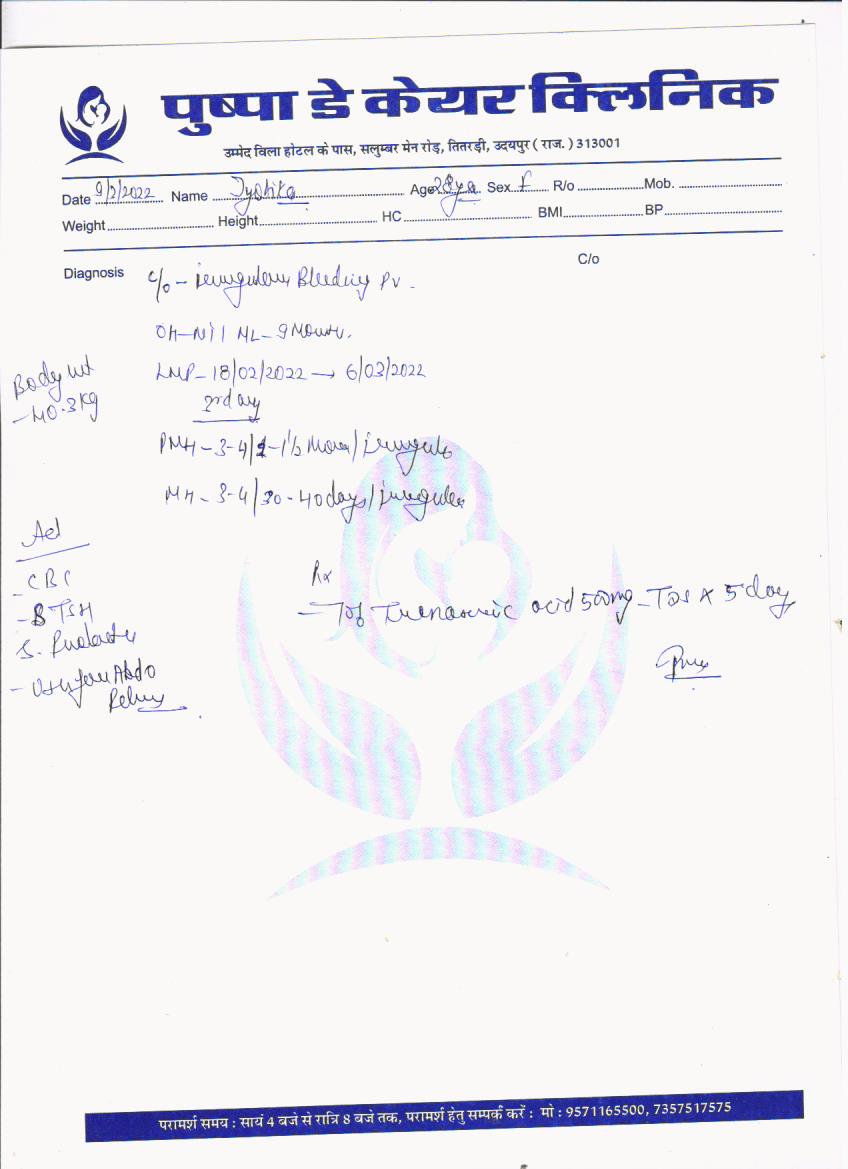 पुष्पा डे केयर क्लिनिक
उम्मेद विला होटल के पास, सलुम्बर मेन रोड़, तितरड़ी, उदयपुर ( राज. ) 313001
Date 9/2/2022 Name Jyotika Age 28 yrs Sex f R/o Mob.
Weight Height HC BMI BP
Diagnosis C/o
c/o - irregular Bleeding PV.
OH-Nil ML-9 Month.
LMP-18/02/2022 → 6/03/2022
3rd day
Body wt
- 40.3 kg
PMH - 3-4/1-1½ /irregular
MH - 3-4/30-40 days/irregular
Ad
- CBC
- S TSH
S. Prolactin
- USG Abdo
Pelvis
Rx
- Tab Tranexamic acid 500mg - TDS x 5 day
परामर्श समय : सायं 4 बजे से रात्रि 8 बजे तक, परामर्श हेतु सम्पर्क करें : मो : 9571165500, 7357517575